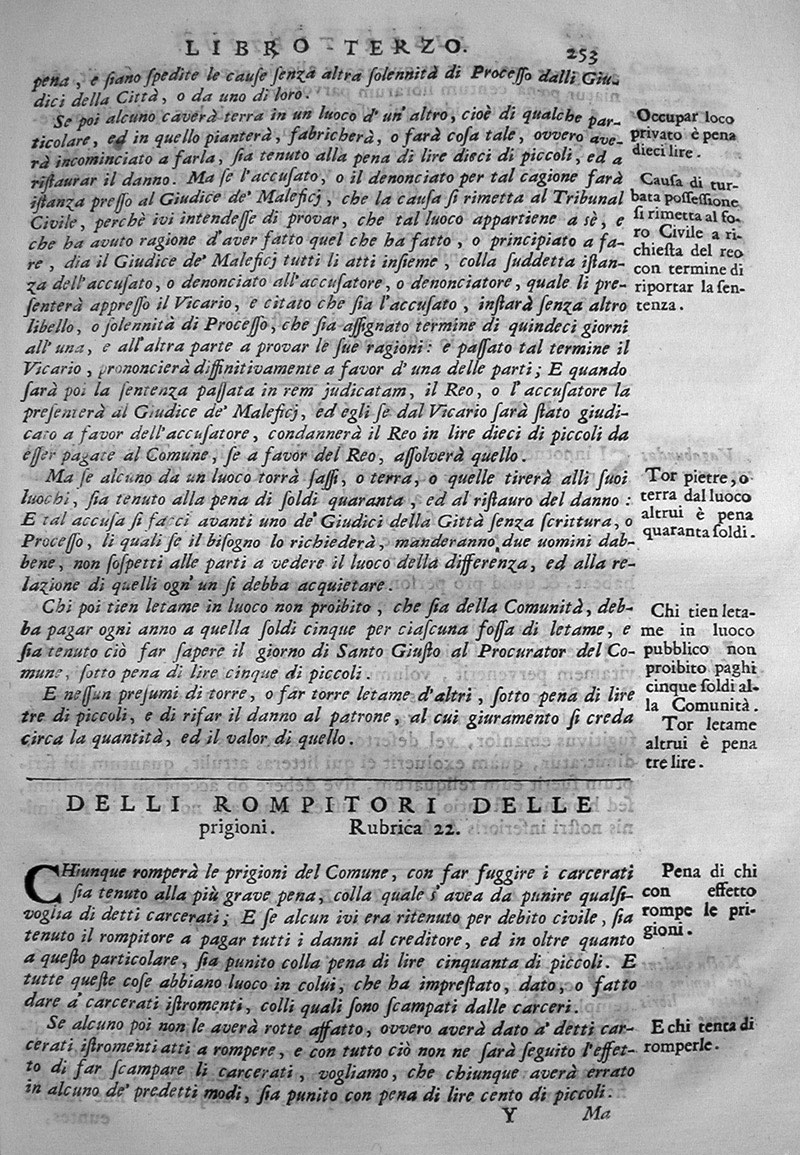 LIBRO TERZO. 253
pena, e ſiano ſpedite le cauſe ſenza altra ſolennità di Proceſſo dalli Giu-
dici della Città, o da uno di loro.
Se poi alcuno caverà terra in un luoco d'un'altro, cioè di qualche par-
ticolare, ed in quello pianterà, fabricherà, o farà coſa tale, ovvero ave-
rà incominciato a farla, ſia tenuto alla pena di lire dieci di piccoli, ed a
riſtaurar il danno. Ma ſe l'accuſato, o il denonciato per tal cagione farà
iſtanza preſſo al Giudice de' Maleficj, che la cauſa ſi rimetta al Tribunal
Civile, perchè ivi intendeſſe di provar, che tal luoco appartiene a sè, e
che ha avuto ragione d'aver fatto quel che ha fatto, o principiato a fa-
re, dia il Giudice de' Maleficj tutti li atti inſieme, colla ſuddetta iſtan-
za dell'accuſato, o denonciato all'accuſatore, o denonciatore, quale li pre-
ſenterà appreſſo il Vicario, e citato che ſia l'accuſato, inſtarà ſenza altro
libello, o ſolennità di Proceſſo, che ſia aſſignato termine di quindeci giorni
all'una, e all'altra parte a provar le ſue ragioni: e paſſato tal termine il
Vicario, prononcierà diffinitivamente a favor d'una delle parti; E quando
ſarà poi la ſentenza paſſata in rem judicatam, il Reo, o l'accuſatore la
preſenterà al Giudice de' Maleficj, ed egli ſe dal Vicario ſarà ſtato giudi-
cato a favor dell'accuſatore, condannerà il Reo in lire dieci di piccoli da
eſſer pagate al Comune, ſe a favor del Reo, aſſolverà quello.
Ma ſe alcuno da un luoco torrà ſaſſi, o terra, o quelle tirerà alli ſuoi
luochi, ſia tenuto alla pena di ſoldi quaranta, ed al riſtauro del danno:
E tal accuſa ſi facci avanti uno de' Giudici della Gittà ſenza ſcrittura, o
Proceſſo, li quali ſe il biſogno lo richiederà, manderanno due uomini dab-
bene, non ſoſpetti alle parti a vedere il luoco della differenza, ed alla re-
lazione di quelli ogn'un ſi debba acquietare.
Chi poi tien letame in luoco non proibito, che ſia della Comunità, deb-
ba pagar ogni anno a quella ſoldi cinque per ciaſcuna foſſa di letame, e
ſia tenuto ciò far ſapere il giorno di Santo Giuſto al Procurator del Co-
mune, ſotto pena di lire cinque di piccoli.
E neſſun preſumi di torre, o far torre letame d'altri, ſotto pena di lire
tre di piccoli, e di rifar il danno al patrone, al cui giuramento ſi creda
circa la quantità, ed il valor di quello.
Occupar loco
privato è pena
dieci lire.
Cauſa di tur-
bata poſſeſſione
ſi rimetta al fo-
ro Civile a ri-
chieſta del reo
con termine di
riportar la ſen-
tenza.
Tor pietre, o
terra dal luoco
altrui è pena
quaranta ſoldi.
Chi tien leta-
me in luoco
pubblico non
proibito paghi
cinque ſoldi al-
la Comunità.
Tor letame
altrui è pena
tre lire.
DELLI ROMPITORI DELLE
prigioni. Rubrica 22.
CHiunque romperà le prigioni del Comune, con far fuggire i carcerati
ſia tenuto alla più grave pena, colla quale s'avea da punire qualſi-
voglia di detti carcerati; E ſe alcun ivi era ritenuto per debito civile, ſia
tenuto il rompitore a pagar tutti i danni al creditore, ed in oltre quanto
a queſto particolare, ſia punito colla pena di lire cinquanta di piccoli. E
tutte queſte coſe abbiano luoco in colui, che ha impreſtato, dato, o fatto
dare a' carcerati iſtromenti, colli quali ſono ſcampati dalle carceri.
Se alcuno poi non le averà rotte affatto, ovvero averà dato a' detti car-
cerati iſtromenti atti a rompere, e con tutto ciò non ne ſarà ſeguito l'effet-
to di far ſcampare li carcerati, vogliamo, che chiunque averà errato
in alcuno de' predetti modi, ſia punito con pena di lire cento di piccoli.
Pena di chi
con effetto
rompe le pri-
gioni.
E chi tenta di
romperle.
Y Ma